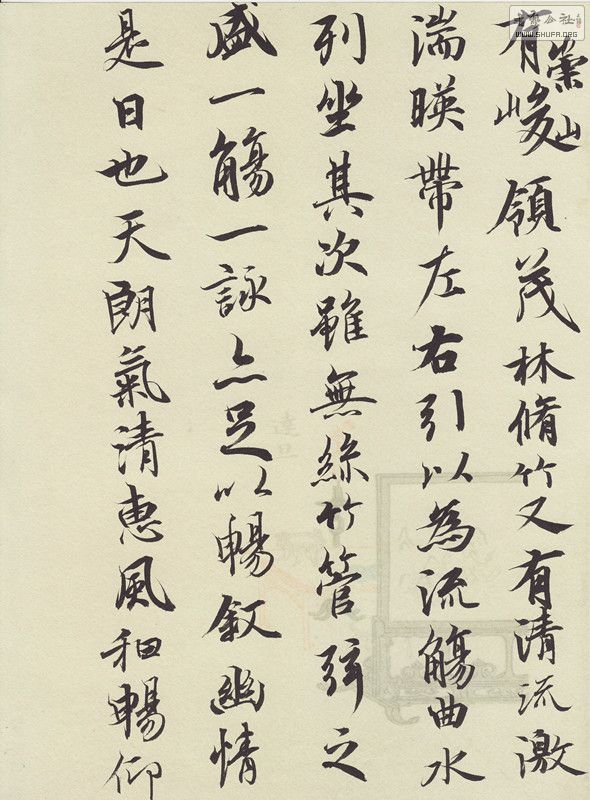 有崇山峻領茂林脩竹又有清流激
湍暎帶左右引以為流觴曲水
列坐其次雖無絲竹管弦之
盛一觴一詠亦足以暢叙幽情
是日也天朗氣清惠風和暢仰
公社
WWW.SHUFA.ORG